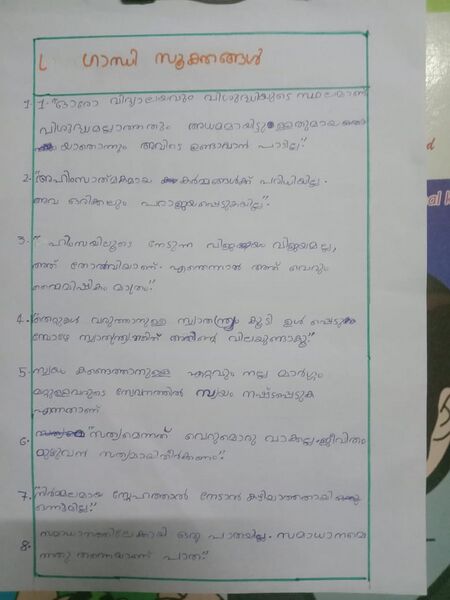 ഗാന്ധി സൂക്തങ്ങൾ
1. 1. "ഓരോ വിദ്യാലയവും വിശുദ്ധിയുടെ സ്ഥലമാണ്
വിശുദ്ധമല്ലാത്തതും അധമമായിട്ടുള്ളതുമായ
യാതൊന്നും അവിടെ ഉണ്ടാവാൻ പാടില്ല".
2. "അഹിംസാത്മകമായ കർമ്മങ്ങൾക്ക് പരിധിയില്ല.
അവ ഒരിക്കലും പരാജയപ്പെടുകയില്ല".
3. "ഹിംസയിലൂടെ നേടുന്ന വിജയം വിജയമല്ല,
അത് തോൽവിയാണ്. എന്തെന്നാൽ അത് വെറും
നൈമിഷികം മാത്രം".
4. "തെറ്റുകൾ വരുത്താനുള്ള സ്വാതന്ത്ര്യം കൂടി ഉൾപ്പെടു
മ്പോഴേ സ്വാതന്ത്ര്യത്തിന് അതിന്റെ വിലയുണ്ടാകൂ".
5. സ്വയം കണ്ടെത്താനുള്ള ഏറ്റവും നല്ല മാർഗ്ഗം
മറ്റുള്ളവരുടെ സേവനത്തിൽ സ്വയം നഷ്ടപ്പെടുക
എന്നതാണ്
6. "സത്യമെന്നത് വെറുമൊരു വാക്കല്ല. ജീവിതം
മുഴുവൻ സത്യമായിത്തീർക്കണം".
7. "നിർമ്മലമായ സ്നേഹത്താൽ നേടാൻ കഴിയാത്തതായി
ഒന്നുമില്ല".
8. സമാധാനത്തിലേക്കായി ഒരു പാതയില്ല. സമാധാനമെ
ന്നതു തന്നെയാണ് പാത".